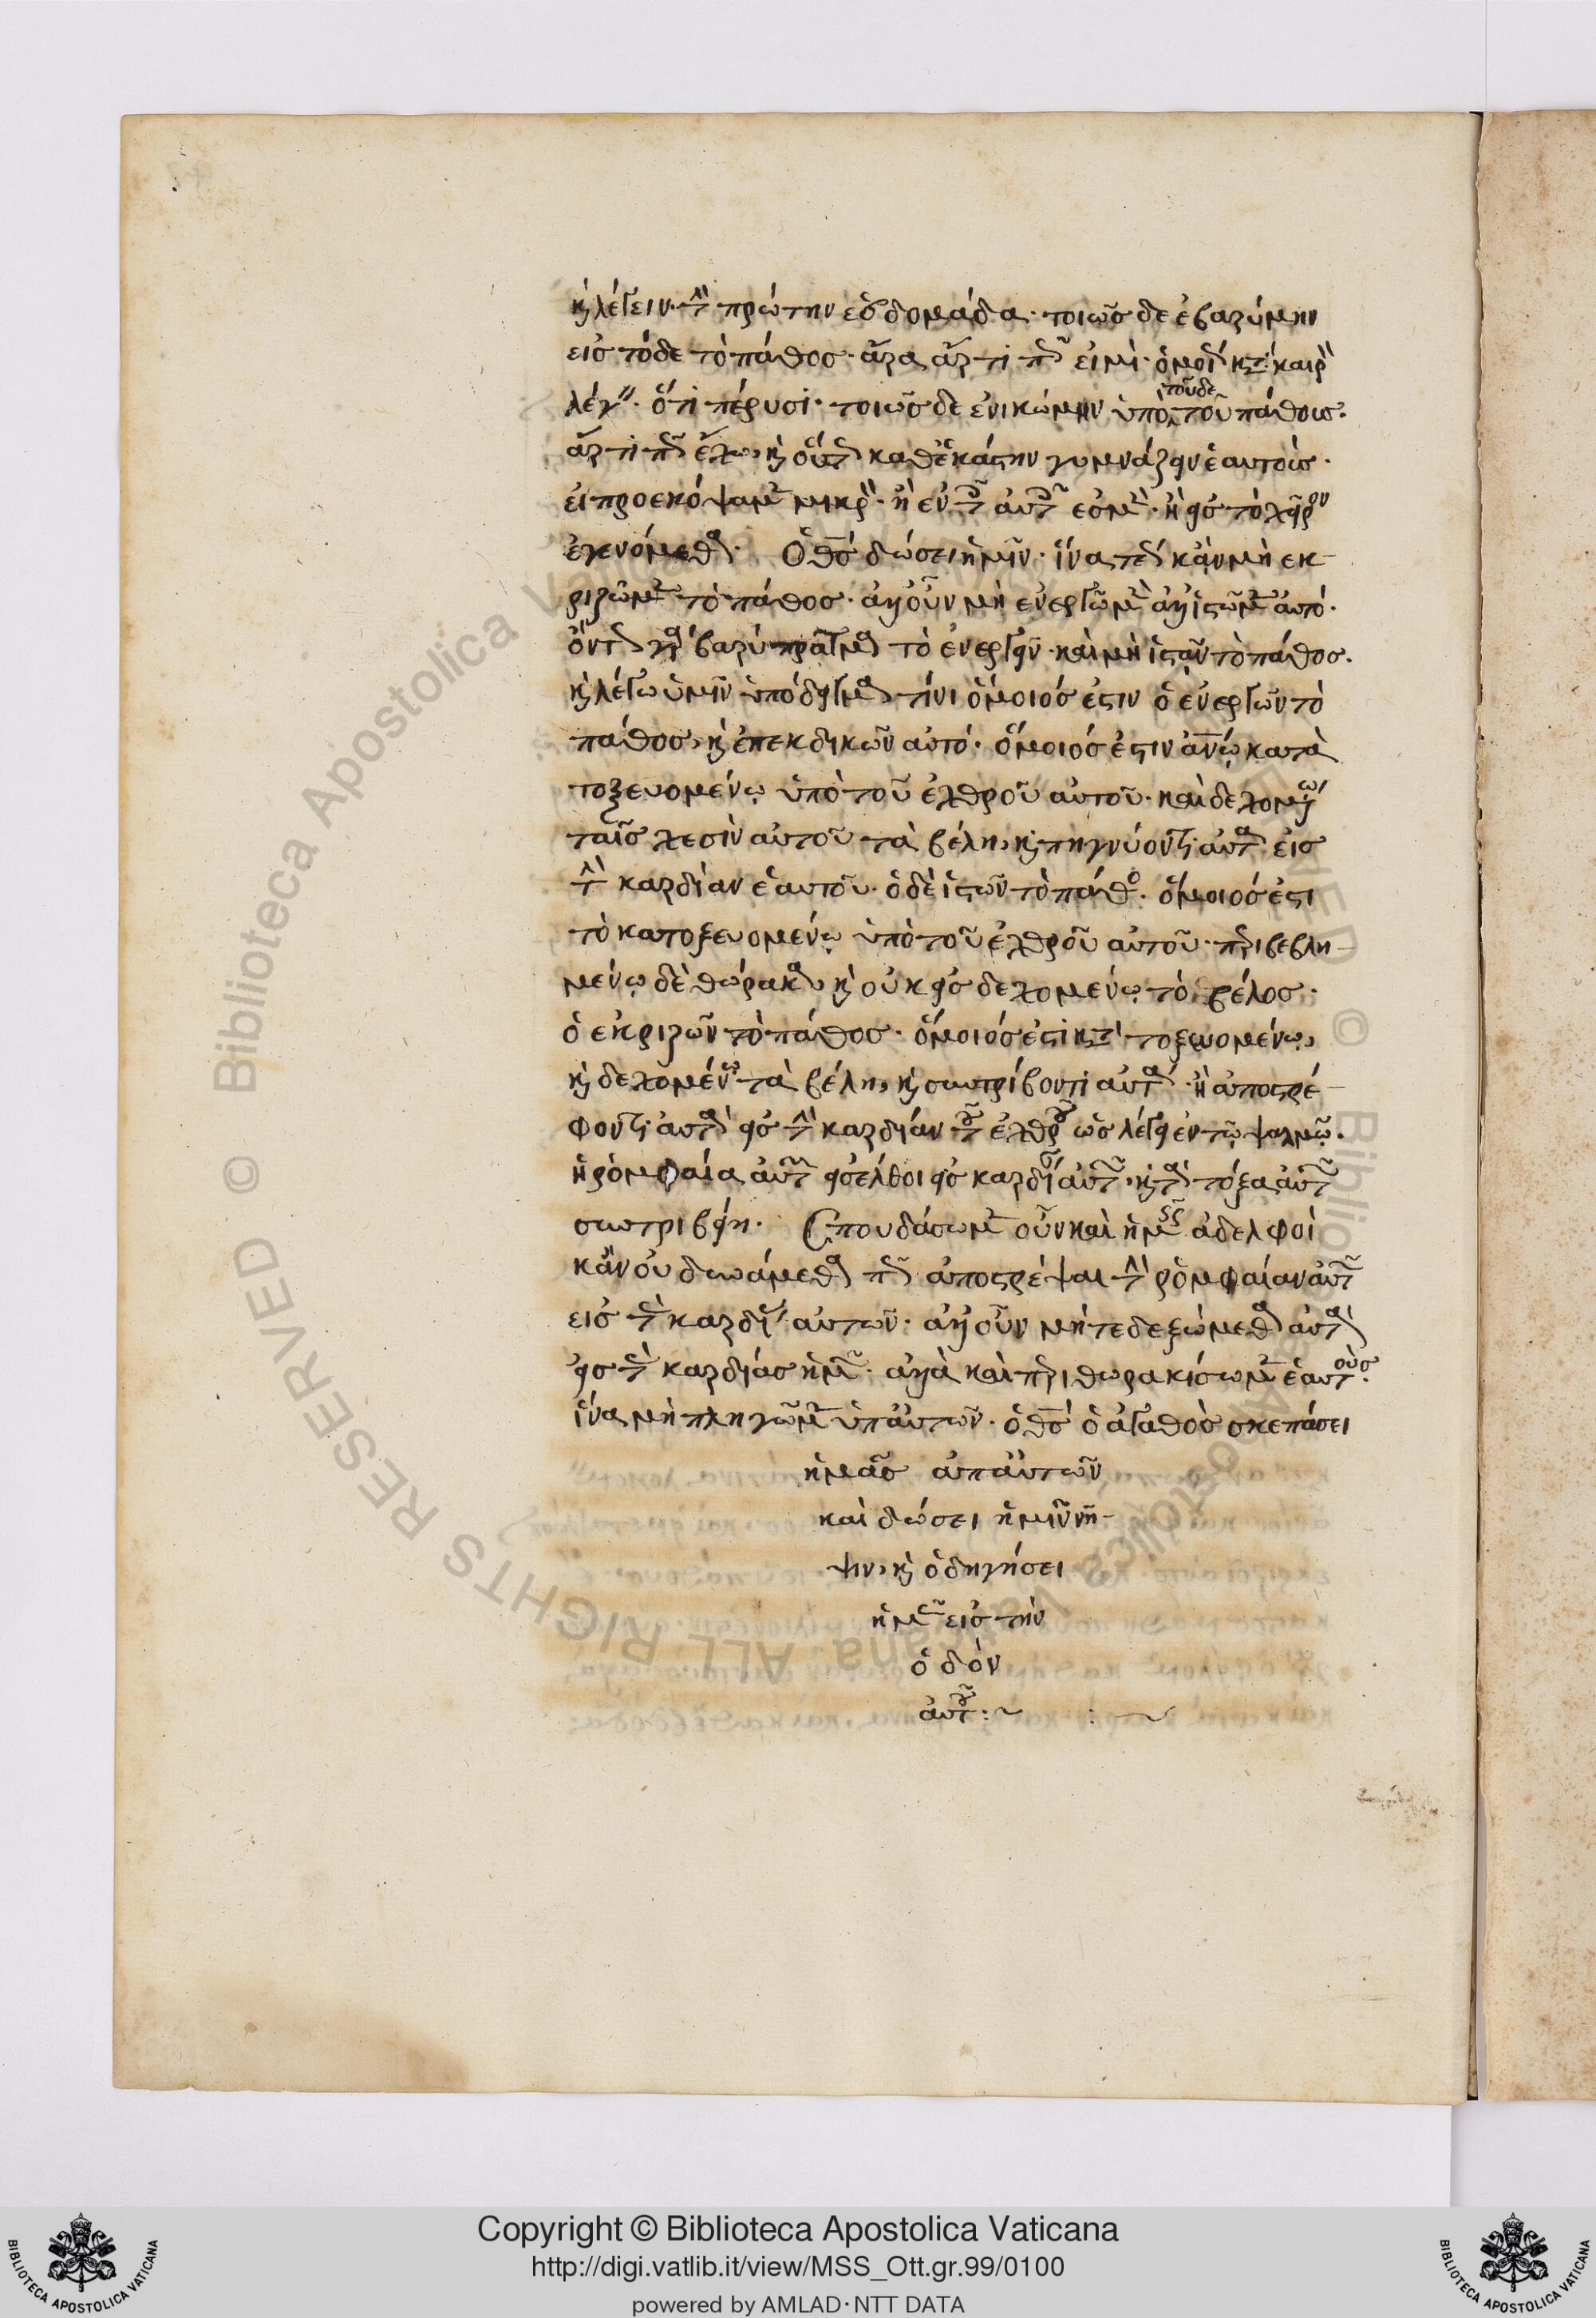 καὶ λέγειν τὴν πρώτην ἑβδομάδα· τοιῶσδε ἐβαρύμην
εἰς τόδε τὸ πάθος· ἆρα ἄρτι πῶς εἰμὶ· ὁμοίως κατὰ καιρὸν
λέγειν· ὅτι πέρυσι· τοιῶσδε ἐνικώμην ὑπὸ τοῦδε τοῦ πάθους·
ἄρτι πῶς ἔχω, καὶ οὕτως καθεκάστην γυμνάζειν ἑαυτούς·
εἰ προεκόψαμεν μικρὸν· ἢ ἐν τοῦ αὐτοῦ ἐσμὲν· ἢ εἰς τὸ χεῖρον
ἐγενόμεθα· Ὁ θς δώσει ἡμῖν· ἵνα κἂν μὴ εκ-
ριζῶμεν τὸ πάθος· ἀλλ' οὖν μὴ ἐνεργῶμεν ἀλλ' ἱστῶμεν αὐτό·
ὄντως γὰρ βαρὺ πρᾶγμα τὸ ἐνεργεῖν· καὶ μὴ ἱστᾶν τὸ πάθος·
καὶ λέγω ὑμῖν ὑπόδειγμα τίνι ὅμοιός ἐστιν ὁ ἐνεργῶν τὸ
πάθος, καὶ ἐπεκδικῶν αὐτό· ὅμοιός ἐστιν ἀνῳ κατα
τοξευομένῳ ὑπὸ τοῦ ἐχθροῦ αὐτοῦ· καὶ δεχομένῳ
ταῖς χεσὶν αὐτοῦ τὰ βέλη, καὶ πηγνύοντι αὐτὰ εἰς
τὴν καρδίαν ἑαυτοῦ· ὁ δὲ ἱστῶν τὸ πάθος· ὅμοιός ἐστι
τὸ κατοξευομένῳ ὑπὸ τοῦ ἐχθροῦ αὐτοῦ· περιβεβλη-
μένῳ δὲ θώρακα, καὶ οὐκ εἰσδεχομένῳ τὸ βέλος·
ὁ ἐκριζῶν τὸ πάθος· ὅμοιός ἐστι κατατοξευομένῳ,
καὶ δεχομένῳ τὰ βέλη, καὶ συντρίβοντι αὐτὰ· ἢ ἀποστρέ-
φοντι αὐτὰ εἰς τὴν καρδίαν τοῦ ἐχθροῦ ὡς λέγει ἐν τῷ ψαλμῷ·
ἡ ῥομφαία αὐτῶν εἰσέλθοι εἰς καρδίαν αὐτῶν· καὶ τὰ τόξα αὐτῶν
συντριβείη· Σπουδάσωμεν οὖν καὶ ἡμεῖς ἀδελφοὶ
κἂν οὐ δυνάμεθα πῶς ἀποστρέψαι τὴν ῥομφαίαν αὐτῶν
εἰς τὴν καρδίαν αὐτῶν· ἀλλ' οὖν μήτε δεξώμεθα αὐτὰ
εἰς τὰς καρδίας ἡμῶν· ἀλλὰ καὶ περιθωρακίσωμεν ἑαυτούς·
ἵνα μὴ πληγῶμεν ὑπ' αὐτῶν· ὁ θς ὁ ἀγαθὸς σκεπάσει
ἡμᾶς ἀπ' αὐτῶν
καὶ δώσει ἡμῖν νῆ-
ψιν, καὶ ὁδηγήσει
ἡμᾶς εἰς τὴν
ὁδὸν
αὐτοῦ:~ :~
Copyright © Biblioteca Apostolica Vaticana
http://digi.vatlib.it/view/MSS_Ott.gr.99/0100
powered by AMLAD·NTT DATA
BIBLIOTECA APOSTOLICA VATICANA
BIBLIOTECA APOSTOLICA VATICANA
© Biblioteca Apostolica Vaticana ALL RIGHTS RESERVED